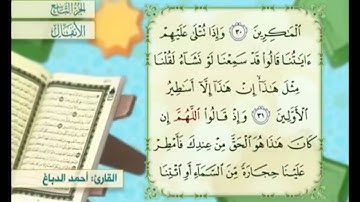 الجزء التاسع
الأنفال
الْمَاكِرِينَ ٣٠ وَإِذَا تُتْلَىٰ عَلَيْهِمْ
ءَايَاتُنَا قَالُوا قَدْ سَمِعْنَا لَوْ نَشَآءُ لَقُلْنَا
مِثْلَ هَٰذَا إِنْ هَٰذَا إِلَّا أَسَاطِيرُ
الْأَوَّلِينَ ٣١ وَإِذْ قَالُوا اللَّهُمَّ إِن
كَانَ هَٰذَا هُوَ الْحَقَّ مِنْ عِندِكَ فَأَمْطِرْ
عَلَيْنَا حِجَارَةً مِّنَ السَّمَآءِ أَوِ ائْتِنَا
القارئ: أحمد الدباغ